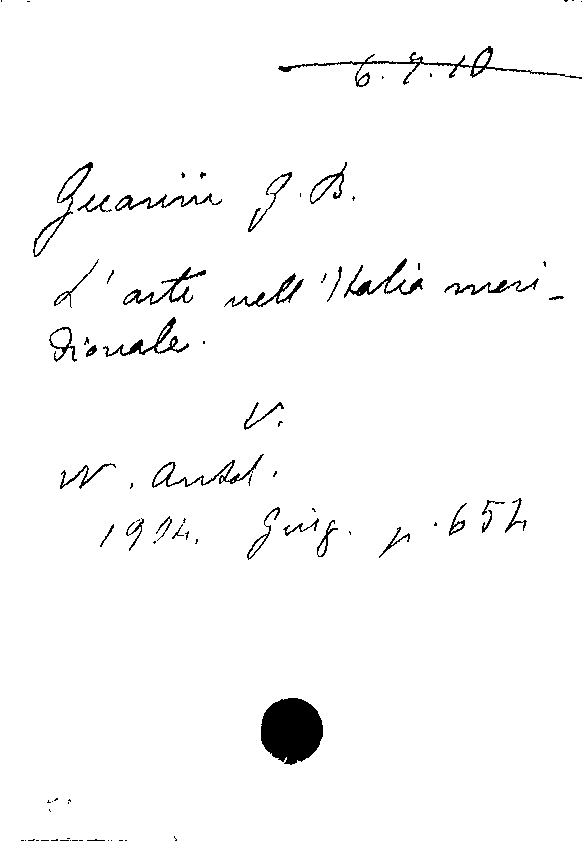 6.7.10
Guarini G. B.
L'arte nell'Italia meri-
dionale.
V.
N. Antol.
1904. Giug. p. 654